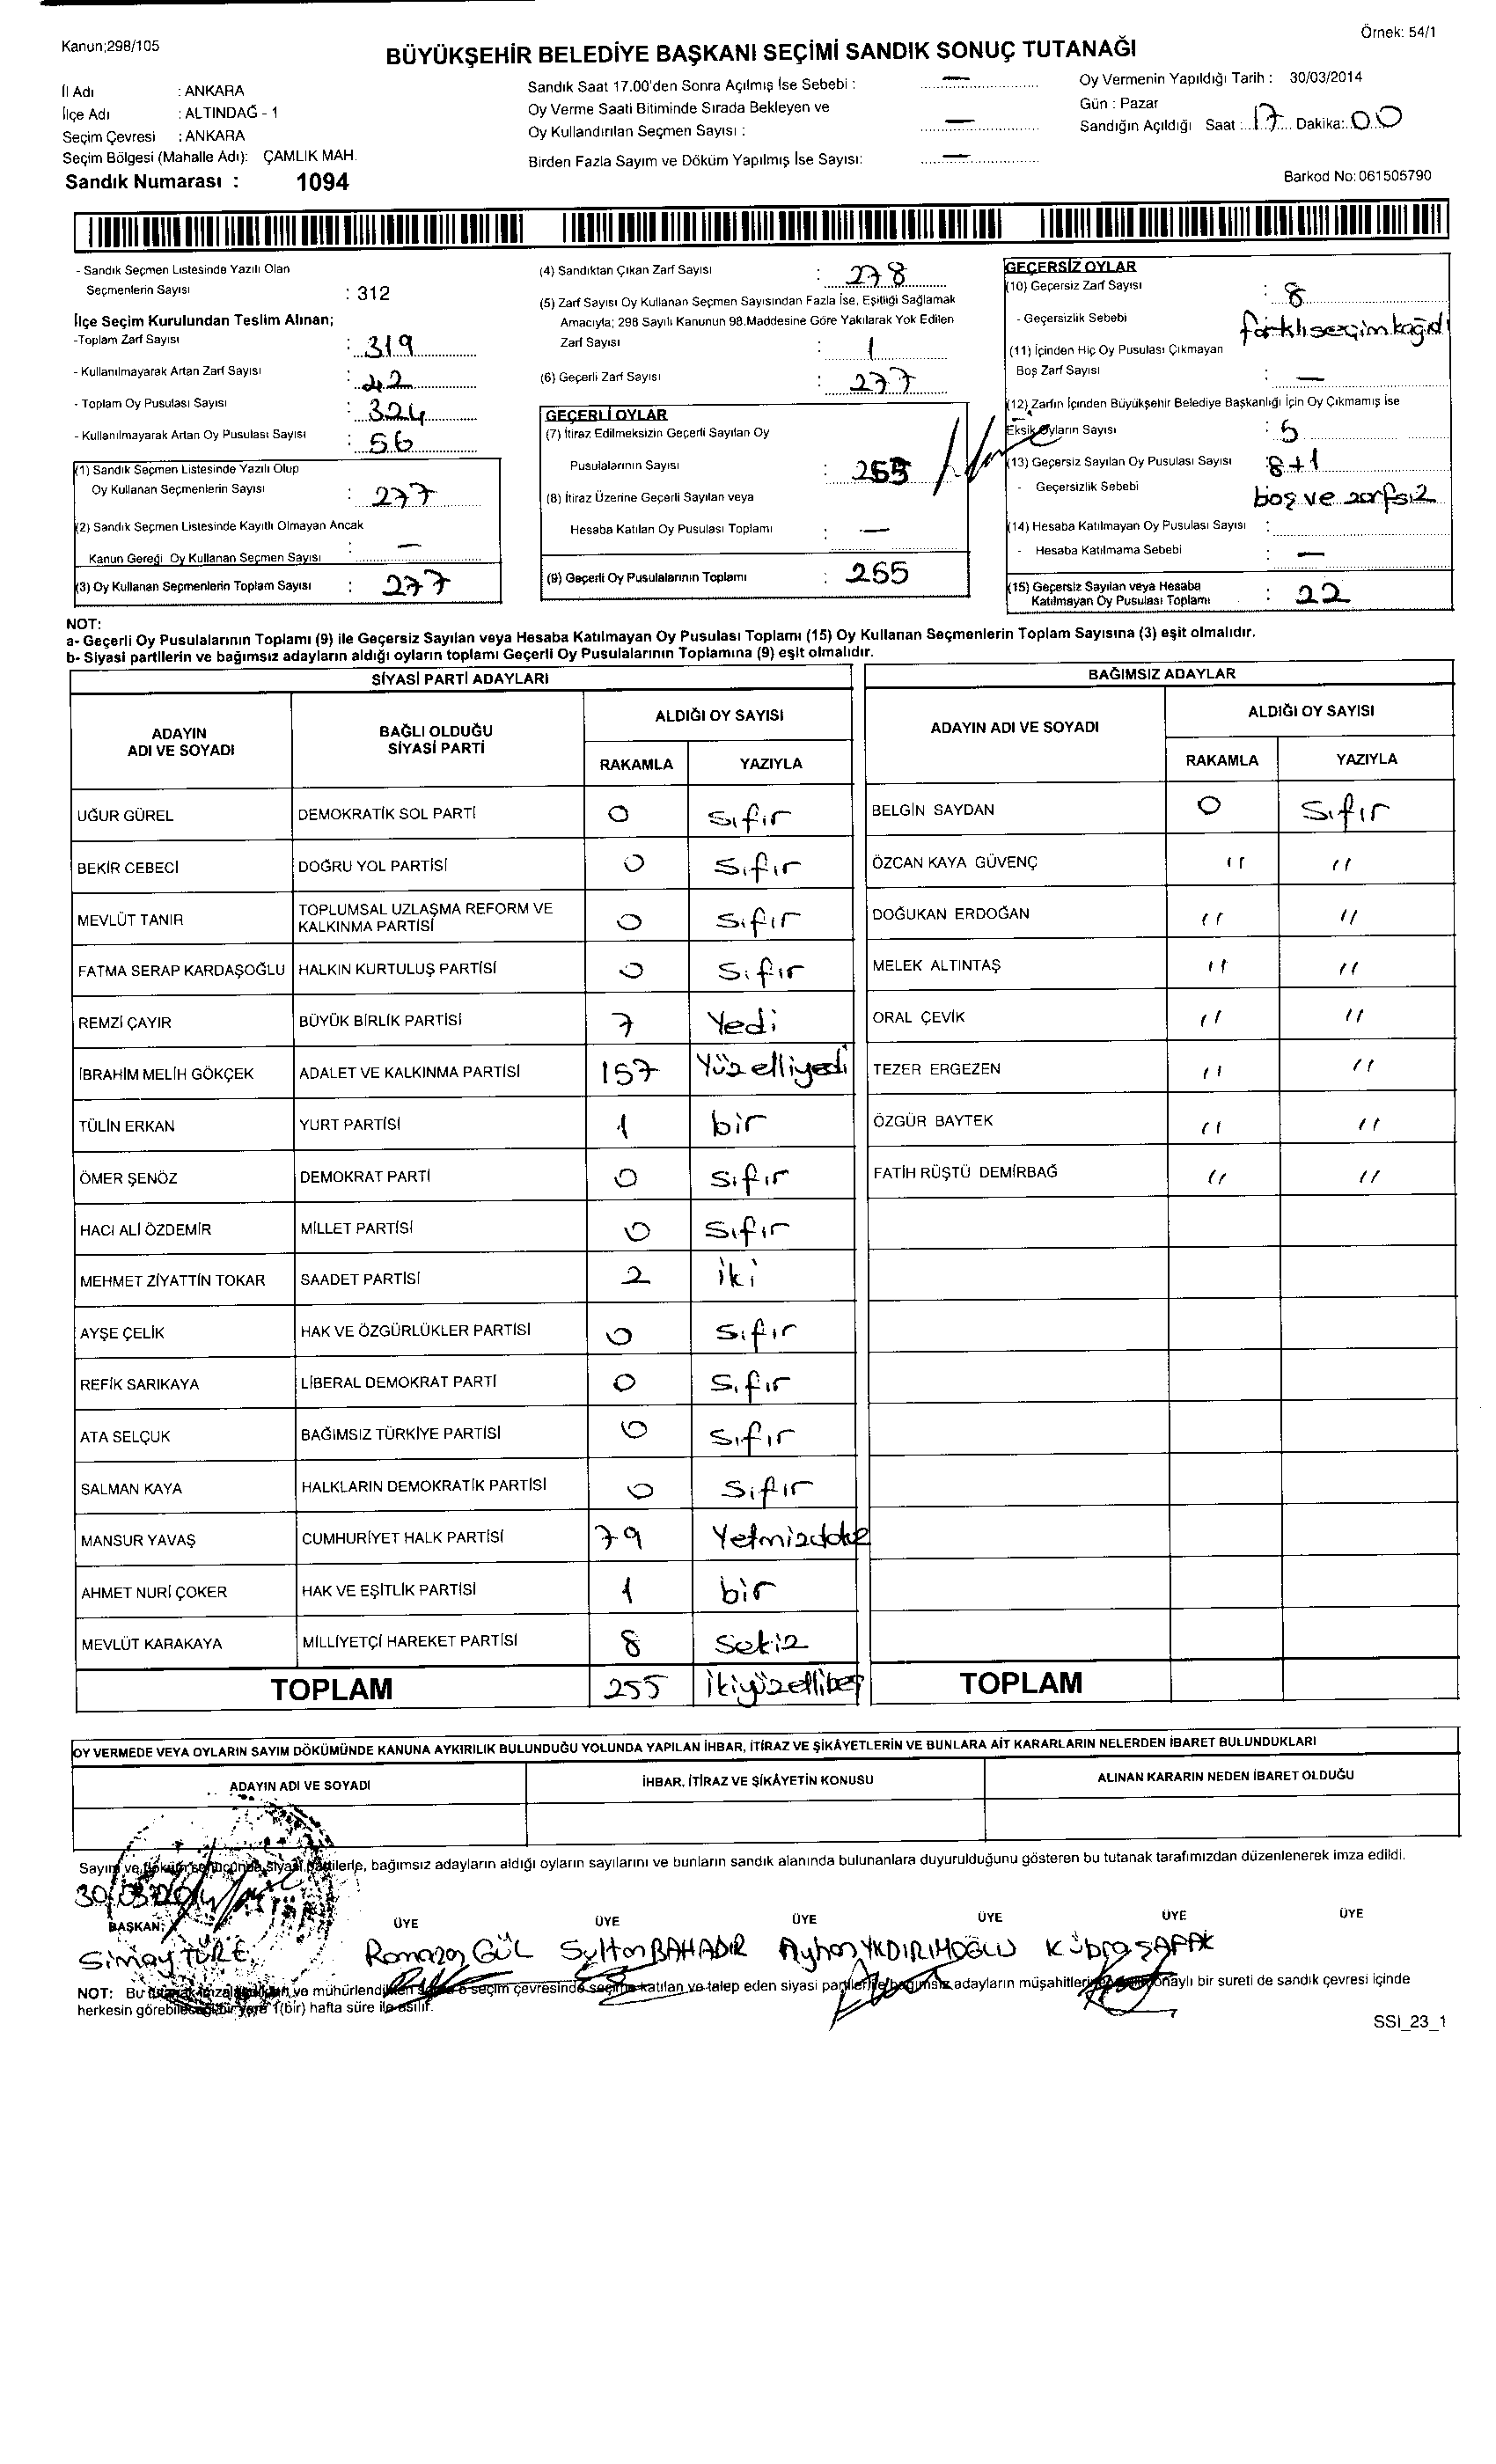 Kanun;298/105
Örnek: 54/1
BÜYÜKŞEHİR BELEDİYE BAŞKANI SEÇİMİ SANDIK SONUÇ TUTANAĞI
İl Adı : ANKARA
İlçe Adı : ALTINDAĞ - 1
Seçim Çevresi : ANKARA
Seçim Bölgesi (Mahalle Adı): ÇAMLIK MAH.
Sandık Numarası : 1094
Sandık Saat 17.00'den Sonra Açılmış İse Sebebi : —
Oy Verme Saati Bitiminde Sırada Bekleyen ve
Oy Kullandırılan Seçmen Sayısı : —
Birden Fazla Sayım ve Döküm Yapılmış İse Sayısı: —
Oy Vermenin Yapıldığı Tarih : 30/03/2014
Gün : Pazar
Sandığın Açıldığı Saat : 17 Dakika: 00
Barkod No: 061505790
- Sandık Seçmen Listesinde Yazılı Olan
Seçmenlerin Sayısı : 312
İlçe Seçim Kurulundan Teslim Alınan;
-Toplam Zarf Sayısı : 319
- Kullanılmayarak Artan Zarf Sayısı : 42
- Toplam Oy Pusulası Sayısı : 324
- Kullanılmayarak Artan Oy Pusulası Sayısı : 56
(1) Sandık Seçmen Listesinde Yazılı Olup
Oy Kullanan Seçmenlerin Sayısı : 277
(2) Sandık Seçmen Listesinde Kayıtlı Olmayan Ancak
Kanun Gereği Oy Kullanan Seçmen Sayısı : —
(3) Oy Kullanan Seçmenlerin Toplam Sayısı : 277
(4) Sandıktan Çıkan Zarf Sayısı : 278
(5) Zarf Sayısı Oy Kullanan Seçmen Sayısından Fazla İse, Eşitliği Sağlamak
Amacıyla; 298 Sayılı Kanunun 98.Maddesine Göre Yakılarak Yok Edilen
Zarf Sayısı : 1
(6) Geçerli Zarf Sayısı : 277
GEÇERLİ OYLAR
(7) İtiraz Edilmeksizin Geçerli Sayılan Oy
Pusulalarının Sayısı : 255
(8) İtiraz Üzerine Geçerli Sayılan veya
Hesaba Katılan Oy Pusulası Toplamı : —
(9) Geçerli Oy Pusulalarının Toplamı : 255
GEÇERSİZ OYLAR
(10) Geçersiz Zarf Sayısı : 8
- Geçersizlik Sebebi farklı seçim kağıdı
(11) İçinden Hiç Oy Pusulası Çıkmayan
Boş Zarf Sayısı : —
(12) Zarfın İçinden Büyükşehir Belediye Başkanlığı İçin Oy Çıkmamış İse
Eksik Oyların Sayısı : 5
(13) Geçersiz Sayılan Oy Pusulası Sayısı : 8+1
- Geçersizlik Sebebi boş ve zarfsız
(14) Hesaba Katılmayan Oy Pusulası Sayısı :
- Hesaba Katılmama Sebebi : —
(15) Geçersiz Sayılan veya Hesaba
Katılmayan Oy Pusulası Toplamı : 22
NOT:
a- Geçerli Oy Pusulalarının Toplamı (9) ile Geçersiz Sayılan veya Hesaba Katılmayan Oy Pusulası Toplamı (15) Oy Kullanan Seçmenlerin Toplam Sayısına (3) eşit olmalıdır.
b- Siyasi partilerin ve bağımsız adayların aldığı oyların toplamı Geçerli Oy Pusulalarının Toplamına (9) eşit olmalıdır.
SİYASİ PARTİ ADAYLARI
ADAYIN ADI VE SOYADI BAĞLI OLDUĞU SİYASİ PARTİ ALDIĞI OY SAYISI
RAKAMLA YAZIYLA
UĞUR GÜREL DEMOKRATİK SOL PARTİ 0 sıfır
BEKİR CEBECİ DOĞRU YOL PARTİSİ 0 sıfır
MEVLÜT TANIR TOPLUMSAL UZLAŞMA REFORM VE KALKINMA PARTİSİ 0 sıfır
FATMA SERAP KARDAŞOĞLU HALKIN KURTULUŞ PARTİSİ 0 sıfır
REMZİ ÇAYIR BÜYÜK BİRLİK PARTİSİ 7 Yedi
İBRAHİM MELİH GÖKÇEK ADALET VE KALKINMA PARTİSİ 157 Yüzelliyedi
TÜLİN ERKAN YURT PARTİSİ 1 bir
ÖMER ŞENÖZ DEMOKRAT PARTİ 0 sıfır
HACI ALİ ÖZDEMİR MİLLET PARTİSİ 0 sıfır
MEHMET ZİYATTİN TOKAR SAADET PARTİSİ 2 iki
AYŞE ÇELİK HAK VE ÖZGÜRLÜKLER PARTİSİ 0 sıfır
REFİK SARIKAYA LİBERAL DEMOKRAT PARTİ 0 sıfır
ATA SELÇUK BAĞIMSIZ TÜRKİYE PARTİSİ 0 sıfır
SALMAN KAYA HALKLARIN DEMOKRATİK PARTİSİ 0 sıfır
MANSUR YAVAŞ CUMHURİYET HALK PARTİSİ 79
AHMET NURİ ÇOKER HAK VE EŞİTLİK PARTİSİ 1 bir
MEVLÜT KARAKAYA MİLLİYETÇİ HAREKET PARTİSİ 8 Sekiz
TOPLAM 255 ikiyüzellibeş
BAĞIMSIZ ADAYLAR
ADAYIN ADI VE SOYADI ALDIĞI OY SAYISI
RAKAMLA YAZIYLA
BELGİN SAYDAN 0 Sıfır
ÖZCAN KAYA GÜVENÇ " "
DOĞUKAN ERDOĞAN " "
MELEK ALTINTAŞ " "
ORAL ÇEVİK " "
TEZER ERGEZEN " "
ÖZGÜR BAYTEK " "
FATİH RÜŞTÜ DEMİRBAĞ " "
TOPLAM
OY VERMEDE VEYA OYLARIN SAYIM DÖKÜMÜNDE KANUNA AYKIRILIK BULUNDUĞU YOLUNDA YAPILAN İHBAR, İTİRAZ VE ŞİKÂYETLERİN VE BUNLARA AİT KARARLARIN NELERDEN İBARET BULUNDUKLARI
ADAYIN ADI VE SOYADI İHBAR, İTİRAZ VE ŞİKÂYETİN KONUSU ALINAN KARARIN NEDEN İBARET OLDUĞU
Sayım ve döküm sonucunda siyasi partilerle, bağımsız adayların aldığı oyların sayılarını ve bunların sandık alanında bulunanlara duyurulduğunu gösteren bu tutanak tarafımızdan düzenlenerek imza edildi.
30/03/2014
BAŞKAN ÜYE ÜYE ÜYE ÜYE ÜYE ÜYE
Simay TÜRE Ramazan GÜL Sultan BAHADIR Ayhan Kübra
NOT: Bu tutanak ve mühürlendikten seçim çevresinde seçime katılan ve talep eden siyasi partilerle bağımsız adayların müşahitlerine onaylı bir sureti de sandık çevresi içinde
herkesin görebileceği bir yere 1(bir) hafta süre ile asılır.
SSI_23_1